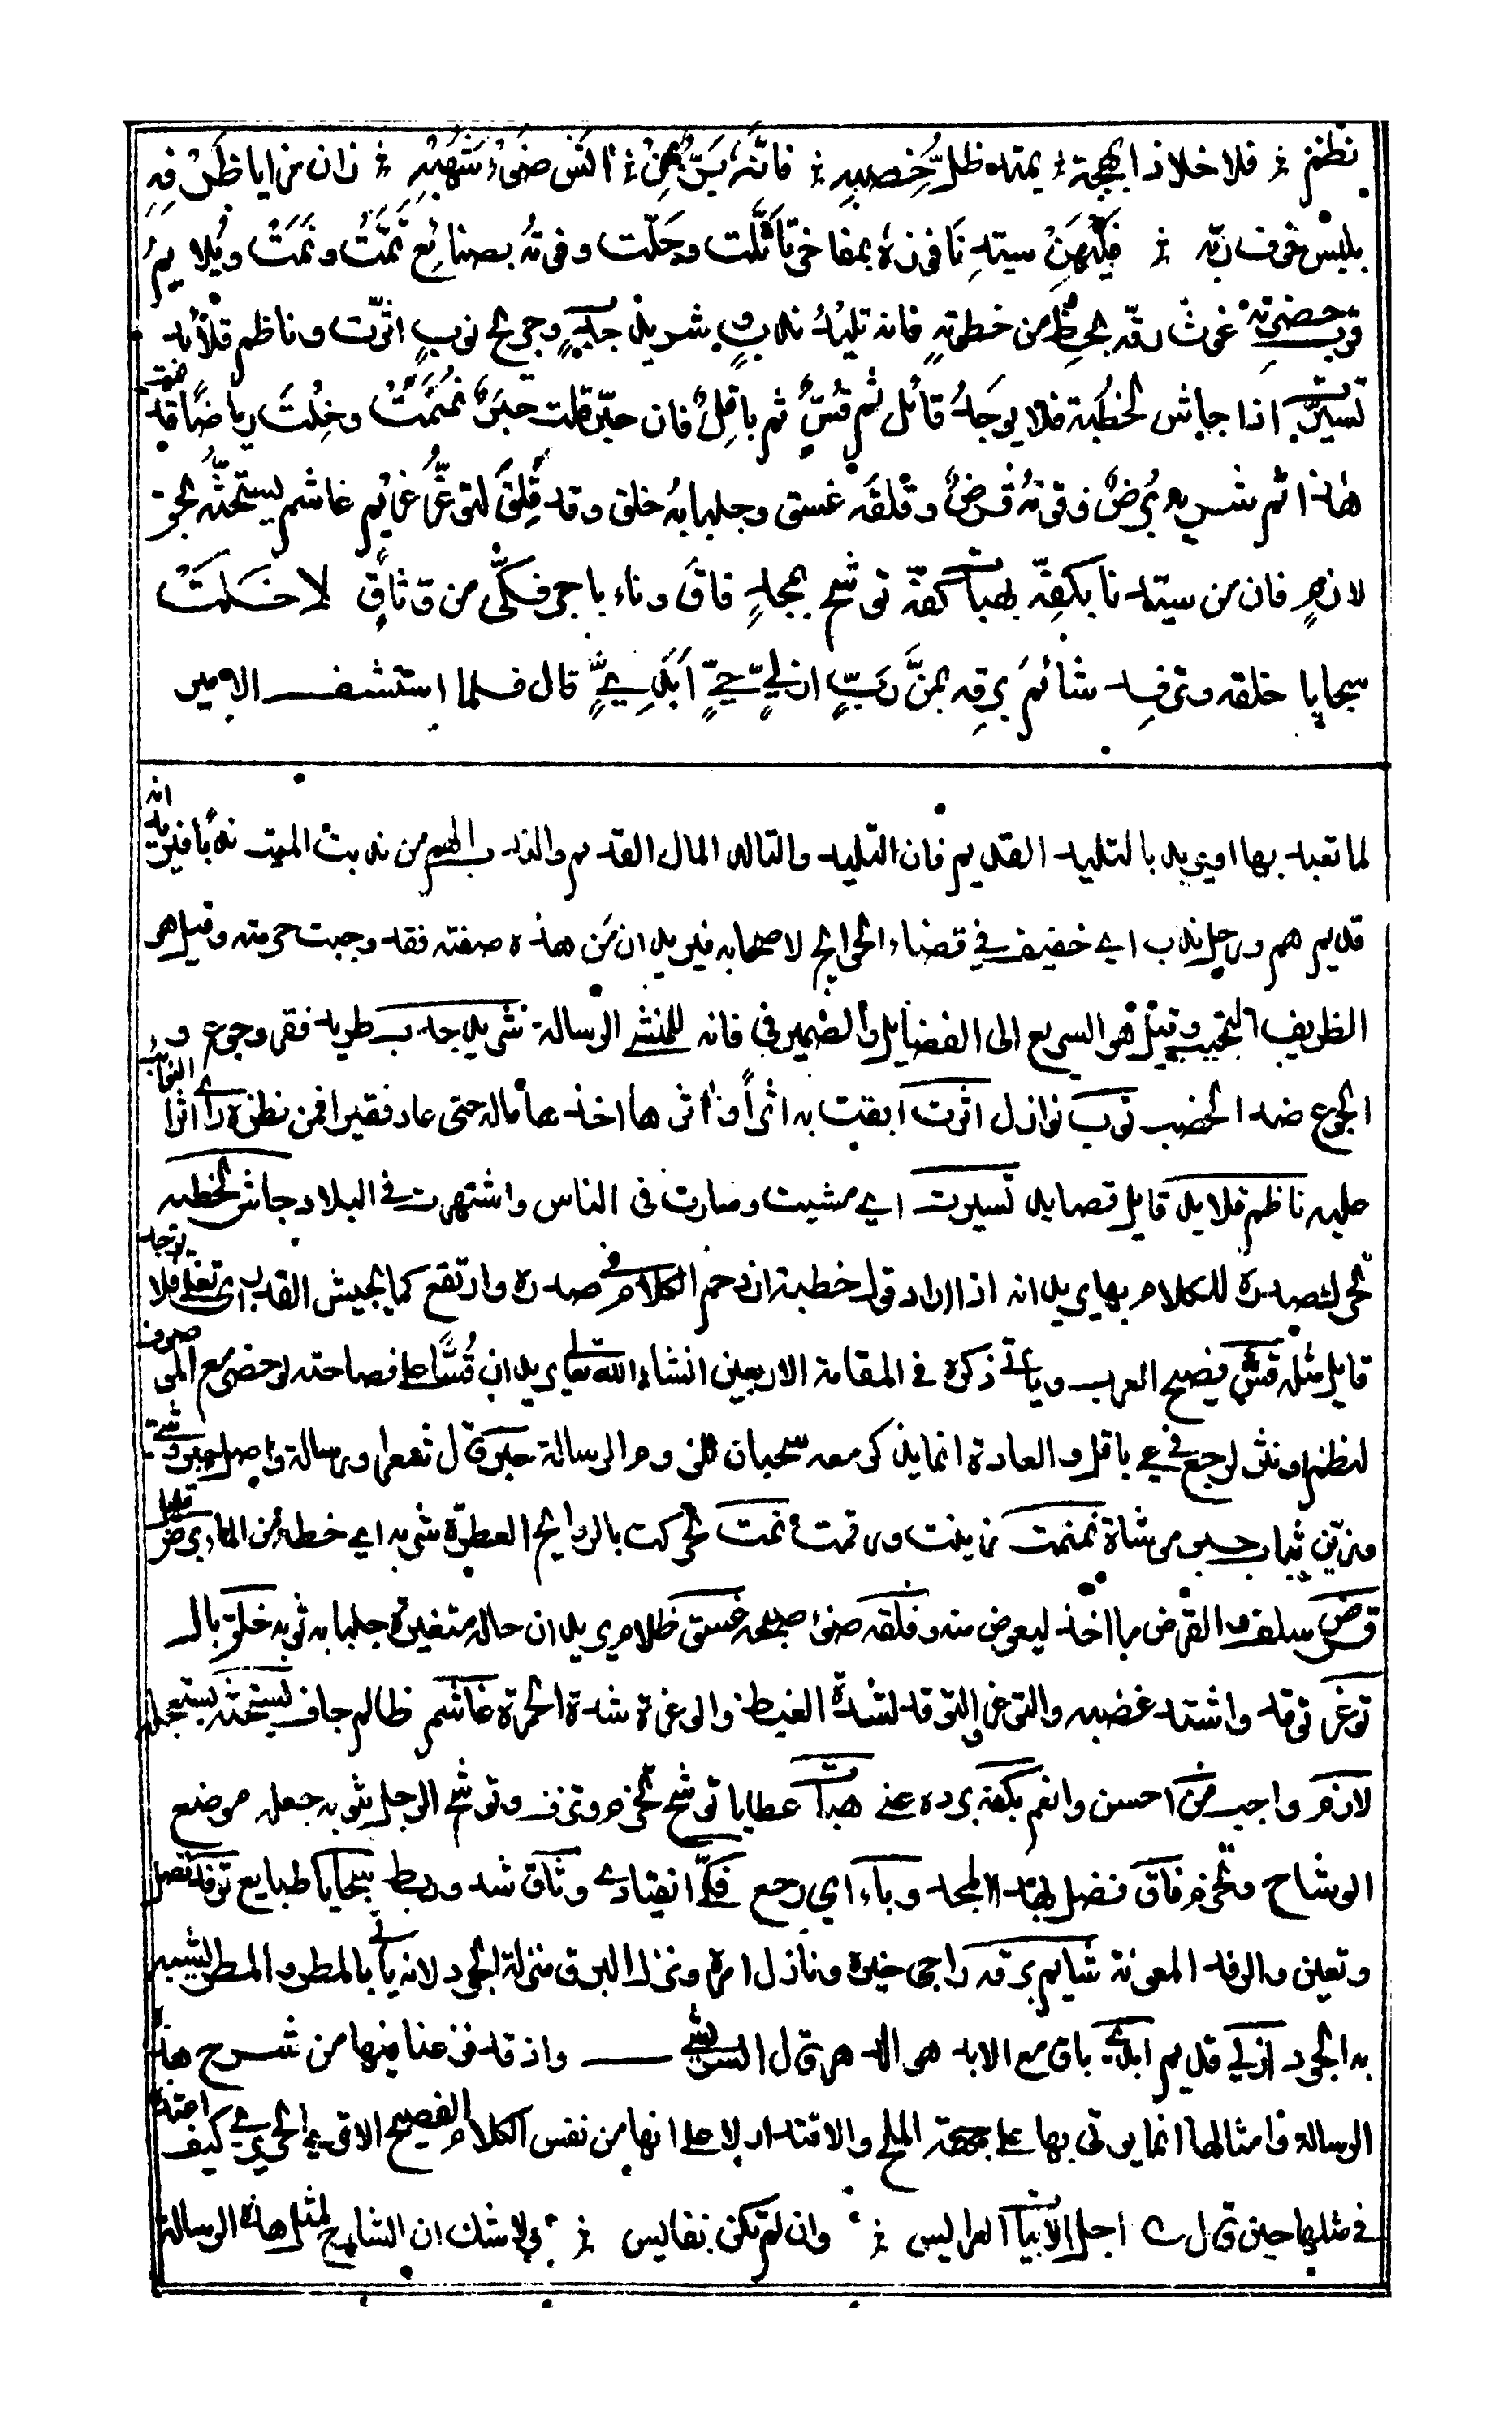 نظنر فلا خلا ذا بهجة يمتد ظل خصبه فانه بر بمن انس ضوء شهبه زان مزايا ظرفه
بلبس خوف ربه فليهن سيدنا فوزه بمفاخر تأثلت وجلت وفوته بصنائع تمت ونمت ويلايم
قرب حضرته غوث رقه بحظ من حظوته فانه تليد ندب وشريد جدب وجريح نوب اثرت وناظم قلائد
تسيرت اذا جاش لخطبة فلا يوجد قائل ثم قس ثم باقل فان حبر قلت حبر نمنمت وخلت رياضا قد نمت
هذا ثم شربه برض وقوته قرض وفلقه غسق وجلبابه خلق وقد قلق لتوغر غريم غاشم يستحثه بحق
لازم فان من سيدنا بكفه بهبات كفه توشح بمجد فاق وباء باجر فكي من وثاق لا خلت
سجايا خلقه وترفد شائم برقه بمن رب ازلي حي ابدي قال فلما استشف الامير
لما تعبد بها او يريد بالتليد القديم فان التليد والتالد المال القديم والندب الهم من ندبت الميت ندبا فيريد انه
قديم هم ورجل ندب اي خفيف في قضاء الحوايج لاصحابه فيريد ان من هذه صفته فقد وجبت حرمته وقيل هو
الظريف النجيب وقيل هو السريع الى الفضايل والضمير في فانه للمنشي الرسالة شريد جدب طريد فقر وجوع و
الجوع ضد الخصب نوب نوازل اثرت ابقت به اثرا واثرها اخذها ماله حتى عاد فقيرا فمن نظره راى اثر النوايب
عليه ناظم قلايد قايل قصايد تسيرت اي مشيت وسارت في الناس واشتهرت في البلاد جاش لخطبة
تحرك صدره للكلام بها يريد انه اذا اراد قول خطبة ازدحم الكلام في صدره وارتفع كما يجيش القدر اي تغلي فلا يوجد
قايل مثله قس فصيح العرب وياتي ذكره في المقامة الاربعين انشاء الله تعالى يريد ان قسا على فصاحته لو حضر مع الموصوف
لنظم او نثر لرجع في عي باقل والعادة انما يذكر معه سحبان للزوم الرسالة حبر قال شعرا ورسالة واصل حبر وشى
وزين ثياب حبر موشاة نمنمت زينت ورقمت نمت تحركت بالروايح العطرة شربه اي حظه من الماء برض قليل
قرض سلف والقرض ما اخذ ليعوض منه وفلقه ضوء صبحه غسق ظلام يريد ان حاله متغيرة جلبابه ثوبه خلق بال
توغر توقد واشتد غضبه والتوغر التوقد لشدة الغيظ والوغرة شدة الحر غاشم ظالم جاف يستحثه يستعجله
لازم واجب من احسن وانعم بكفه برده عني هبات عطايا توشح تحزم وتزين وتوشح الرجل بثوبه جعله موضع
الوشاح وتحزم فاق فضل بهذا المجد وباء اي رجع فكي انقيادي وثاق شد وربط سجايا طبايع ترفد تصل
وتعين والرفد المعونة شايم برقه راجي خيره ونازل امره ونزل البرق منزلة الجود لانه ياتي بالمطر والمطر يشبه
به الجود ازلي قديم ابدي باق مع الابد هو الدهر قال الشريشي واذ قد فرغنا منها من شرح هذه
الرسالة وامثالها انما يوتى بها على جهة الملح والاقتدار لا على انها من نفس الكلام الفصيح الا ترى الحريري كيف اعتذر
في مثلها حين قال اجل الابيات العرايس وان لم تكن نفايس ولا شك ان الشارح لمثل هذه الرسالة